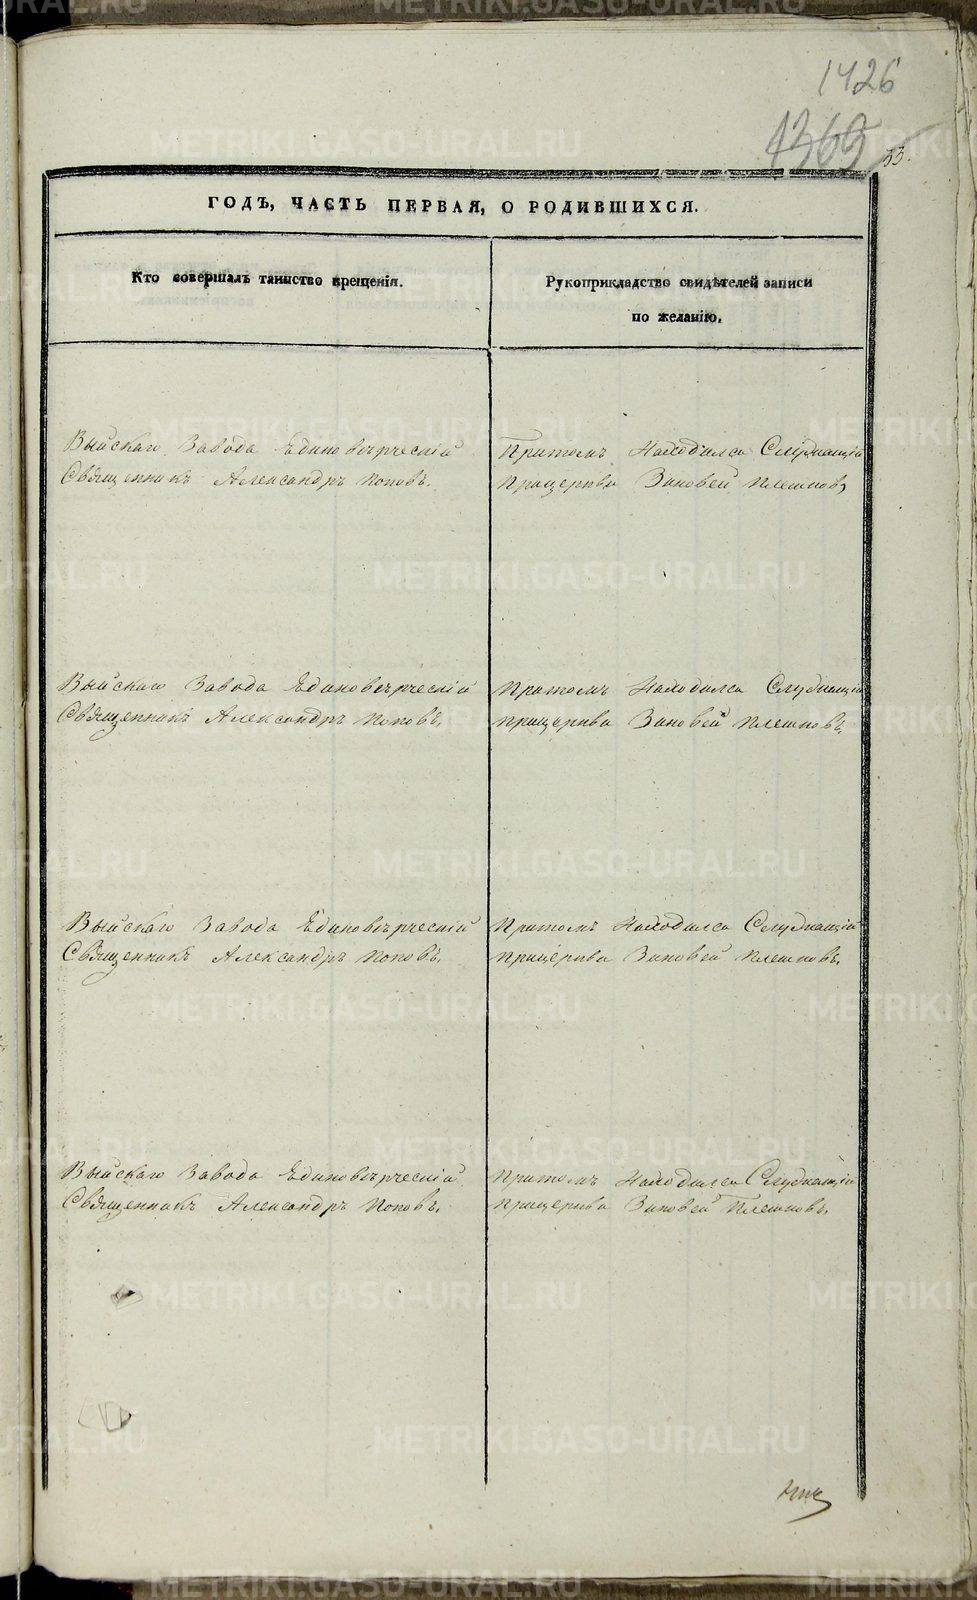 1426
1369
33.
ГОДЪ, ЧАСТЬ ПЕРВАЯ, О РОДИВШИХСЯ.
Кто совершалъ таинство крещенія.
Рукоприкладство свидѣтелей записи
по желанію.
Выйскаго Завода Единовѣрческій
Священникъ Александръ Поповъ.
Притомъ Находился Служащій
Прицерква Зиновей Плешковъ
Выйскаго Завода Единовѣрческій
Священникъ Александръ Поповъ.
Притомъ Находился Служащій
прицерква Зиновей Плешковъ
Выйскаго Завода Единовѣрческій
Священникъ Александръ Поповъ.
Притомъ Находился Служащій
прицерква Зиновей Плешковъ.
Выйскаго Завода Единовѣрческій
Священникъ Александръ Поповъ.
Притомъ Находился Служащій
прицерква Зиновей Плешковъ.
METRIKI.GASO-URAL.RU